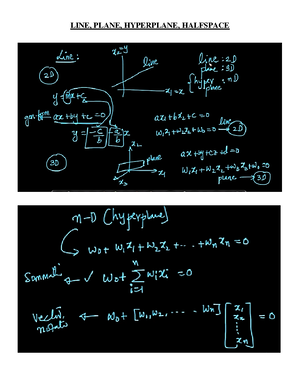 LINE, PLANE, HYPERPLANE, HALFSPACE
Line:
2D
x₂=y
line
x₁=x
line : 2D
plane : 3D
hyper plane nD
y = mx+c
gen form
ax+by+c=0
y = -c/b -a/b x
ax₁+bx₂+c=0
w₁x₁+w₂x₂+w₀=0
line 2D
3D
x₂
plane
x₁
x₃
ax+by+cz+d=0
w₁x₁+w₂x₂+w₃x₃+w₀=0
plane 3D
n-D (hyperplane)
w₀+w₁x₁+w₂x₂+...+wₙxₙ=0
w₀+ n∑i=1 wᵢxᵢ =0
Vector
w₀+[w₁,w₂,... wₙ] [x₁ x₂ ⋮ xₙ] =0